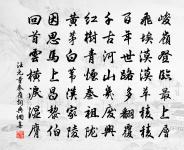 峻嶺登臨最上層
飛埃漠漠草稜稜
百年世路多翻覆
千古河山幾廢興
紅樹青煙秦祖隴
黃茅白葦漢家陵
因思馬上昌黎伯
回首雲橫淚溼膺
汪元量秦嶺詞典網